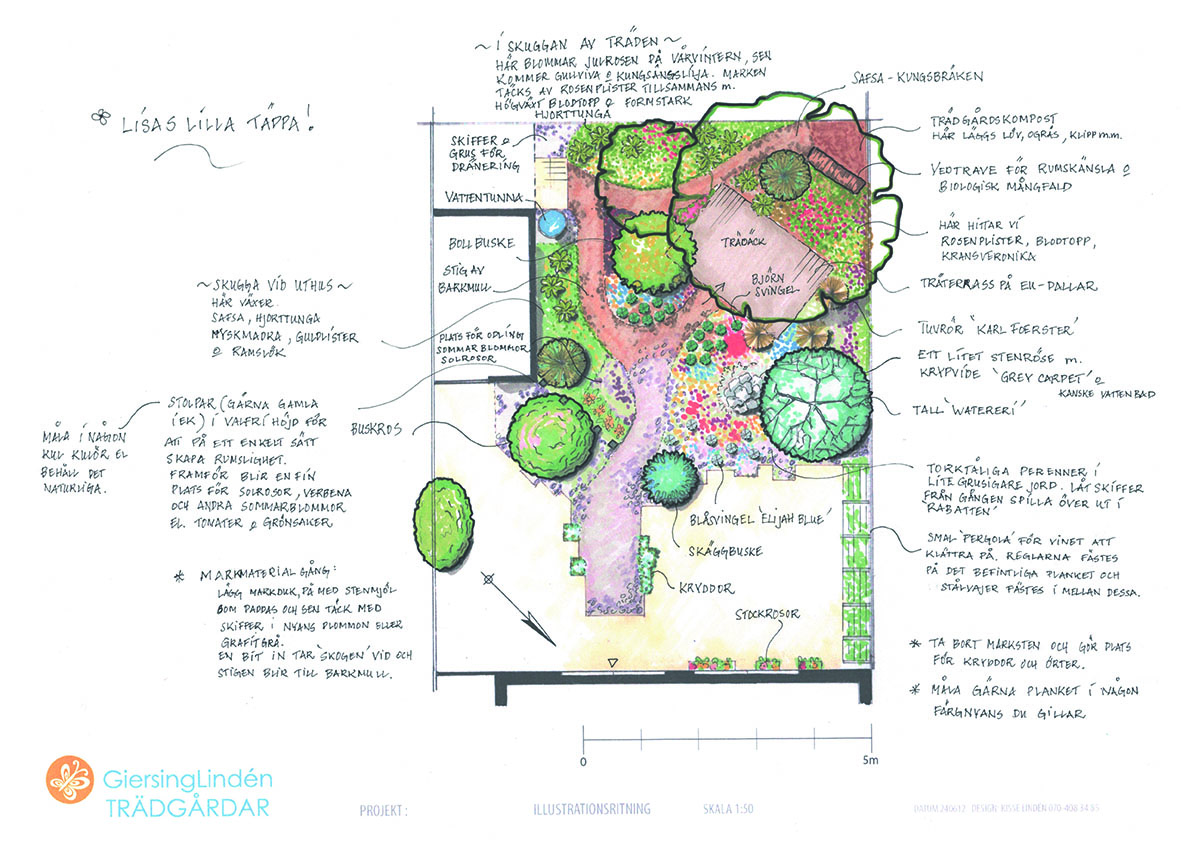 LISAS LILLA TÄPPA!
~ I SKUGGAN AV TRÄDEN ~
HÄR BLOMMAR JULROSEN PÅ VÅRVINTERN, SEN
KOMMER GULLVIVA & KUNGSÄNGSLILJA. MARKEN
TÄCKS AV ROSENPLISTER TILLSAMMANS M.
HÖGVÄXT BLODTOPP & FORMSTARK
HJORTTUNGA
SKIFFER &
GRUS FÖR
DRÄNERING
VATTENTUNNA
BOLLBUSKE
STIG AV
BARKMULL
PLATS FÖR ODLING
SOMMARBLOMMOR
SOLROSOR
~ SKUGGA VID UTHUS ~
HÄR VÄXER
SAFSA, HJORTTUNGA
MYSKMADRA, GULDLISTER
& RAMSLÖK
STOLPAR (GÄRNA GAMLA
I EK) I VALFRI HÖJD FÖR
ATT PÅ ETT ENKELT SÄTT
SKAPA RUMSLIGHET.
FRAMFÖR BLIR EN FIN
PLATS FÖR SOLROSOR, VERBENA
OCH ANDRA SOMMARBLOMMOR
EL. TOMATER & GRÖNSAKER
MÅLA I NÅGON
KUL KULÖR EL
BEHÅLL DET
NATURLIGA.
BUSKROS
* MARKMATERIAL GÅNG:
LÄGG MARKDUK, PÅ MED STENMJÖL
SOM PADDAS OCH SEN TÄCK MED
SKIFFER I NYANS PLOMMON ELLER
GRAFITGRÅ.
EN BIT IN TAR 'SKOGEN' VID OCH
STIGEN BLIR TILL BARKMULL.
SAFSA - KUNGSBRÄKEN
TRÄDGÅRDSKOMPOST
HÄR LÄGGS LÖV, OGRÄS, KLIPP M.M.
VEDTRAVE FÖR RUMSKÄNSLA &
BIOLOGISK MÅNGFALD
HÄR HITTAR VI
ROSENPLISTER, BLODTOPP,
KRANSVERONIKA
TRÄDÄCK
BJÖRN
SVINGEL
TRÄTERRASS PÅ EU-PALLAR
TUVRÖR 'KARL FOERSTER'
ETT LITET STENRÖSE M.
KRYPVIDE 'GREY CARPET' &
KANSKE VATTENBAD
TALL 'WATERERI'
TORKTÅLIGA PERENNER I
LITE GRUSIGARE JORD. LÅT SKIFFER
FRÅN GÅNGEN SPILLA ÖVER UT I
'RABATTEN'
BLÅSVINGEL 'ELIJAH BLUE'
SKÄGGBUSKE
KRYDDOR
STOCKROSOR
SMAL 'PERGOLA' FÖR VINET ATT
KLÄTTRA PÅ. REGLARNA FÄSTES
PÅ DET BEFINTLIGA PLANKET OCH
STÅLVAJER FÄSTES I MELLAN DESSA.
* TA BORT MARKSTEN OCH GÖR PLATS
FÖR KRYDDOR OCH ÖRTER.
* MÅLA GÄRNA PLANKET I NÅGON
FÄRGNYANS DU GILLAR
0 5m
GiersingLindén
TRÄDGÅRDAR
PROJEKT : ILLUSTRATIONSRITNING SKALA 1:50 DATUM 240612 DESIGN: KISSE LINDÉN 070-408 34 85